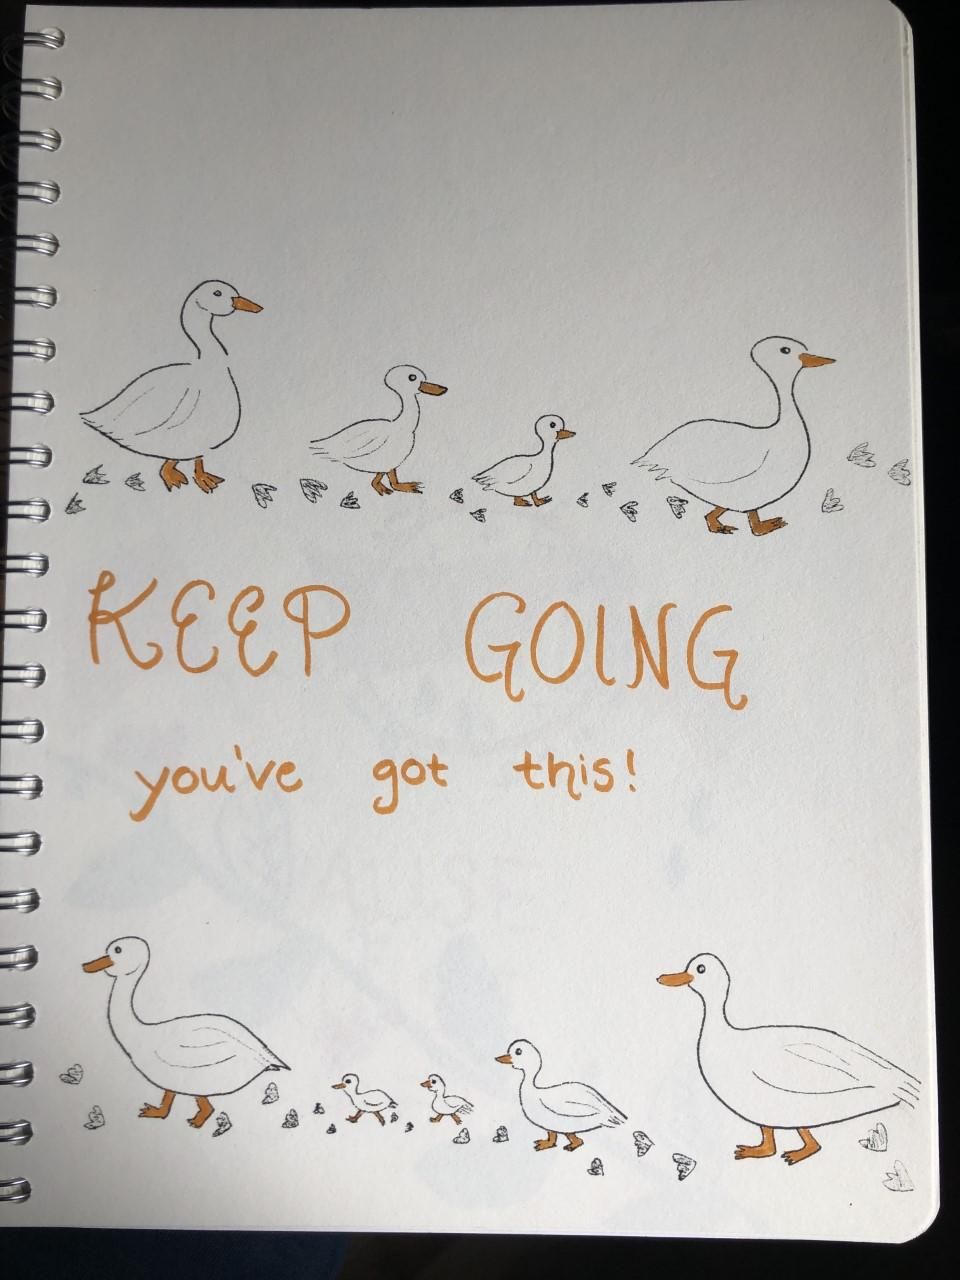 KEEP GOING
you've got this!